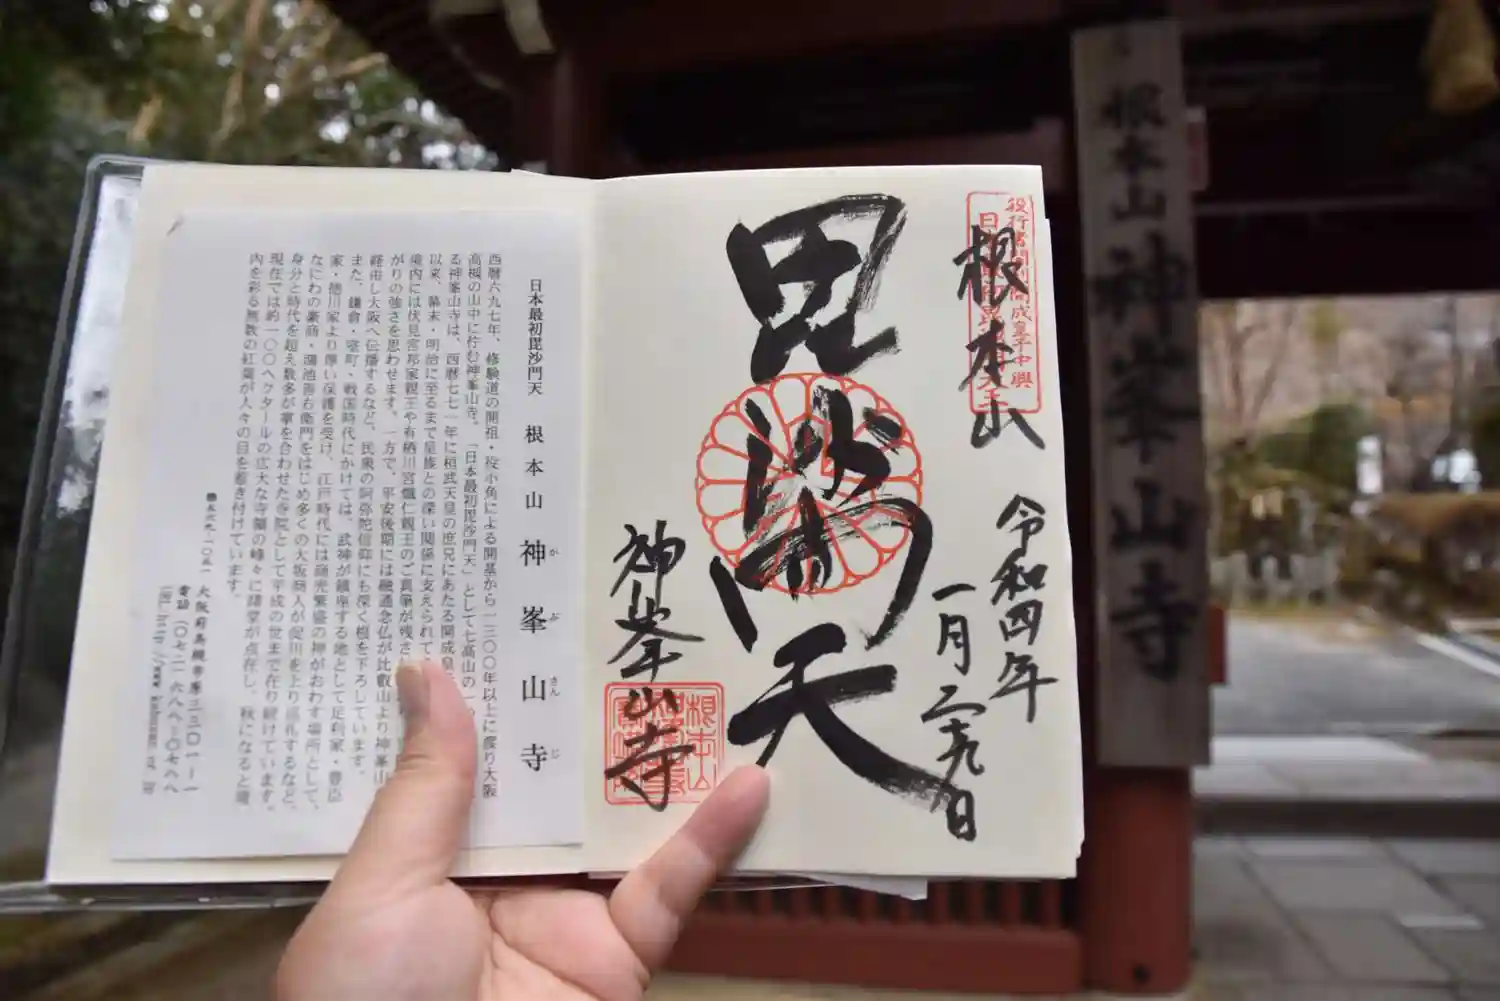 根本山
令和四年
一月二十九日
毘沙門天
神峯山寺
根本山
日本最初毘沙門天 根本山 神峯山寺
か ぶ さん じ
西暦六九七年、修験道の開祖・役小角による開基から一三〇〇年以上に渡り大阪
高槻の山中に佇む神峯山寺。「日本最初毘沙門天」として七高山の一
る神峯山寺は、西暦七七一年に桓武天皇の庶兄にあたる開成皇
以来、幕末・明治に至るまで皇族との深い関係に支えられて
境内には伏見宮邦家親王や有栖川宮熾仁親王のご真筆が残さ
がりの強さを思わせます。一方で、平安後期には融通念仏が比叡山より神峯山
経由し大阪へ伝播するなど、民衆の阿弥陀信仰にも深く根を下ろしています。
また、鎌倉・室町・戦国時代にかけては、武神が鎮座する地として足利家・豊臣
家・徳川家より厚い保護を受け、江戸時代には商売繁盛の神がおわす場所として、
なにわの豪商・鴻池善右衛門をはじめ多くの大坂商人が淀川を上り巡礼するなど、
身分と時代を超え数多が掌を合わせた寺院として平成の世まで在り続けています。
現在では約一〇〇ヘクタールの広大な寺領の峰々に諸堂が点在し、秋になると境
内を彩る無数の紅葉が人々の目を惹き付けています。
大阪府高槻市原三三〇一ー一
電話(〇七二)六八八ー〇七八八
根本山 神峯山寺